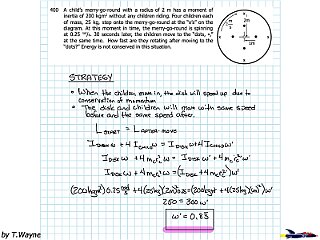 400 A child's merry-go-round with a radius of 2 m has a moment of
inertia of 200 kgm² without any children riding. Four children each
of mass, 25 kg, step onto the merry-go-round the "x's" on the
diagram. At this moment in time, the merry-go-round is spinning
at 0.25 30 seconds later, the children move to the "dots,
at the same time. How fast are they rotating after moving to the
"dots?" Energy is not conserved in this situation.
2m
STRATEGY
• When the children move in, the disk will speed up due to
conservation of momentum
• The disk and children will spin with same speed
before and the same speed after.
L START = L AFTER MOVE
I DISK ω + 4 I CHILD ω = I DISK ω' + 4 I CHILD ω'
I DISK ω + 4 m c r² ω = I DISK ω' + 4 m c r² ω'
I DISK ω + 4 m c r² ω = (I DISK + 4 m c r²) ω'
(200 kgm²) 0.25 + 4(25kg)(2m)² 0.25 = (200 kgm² + 4(25kg)(1m)²) ω'
250 = 300 ω'
ω' = 0.83
by T.Wayne